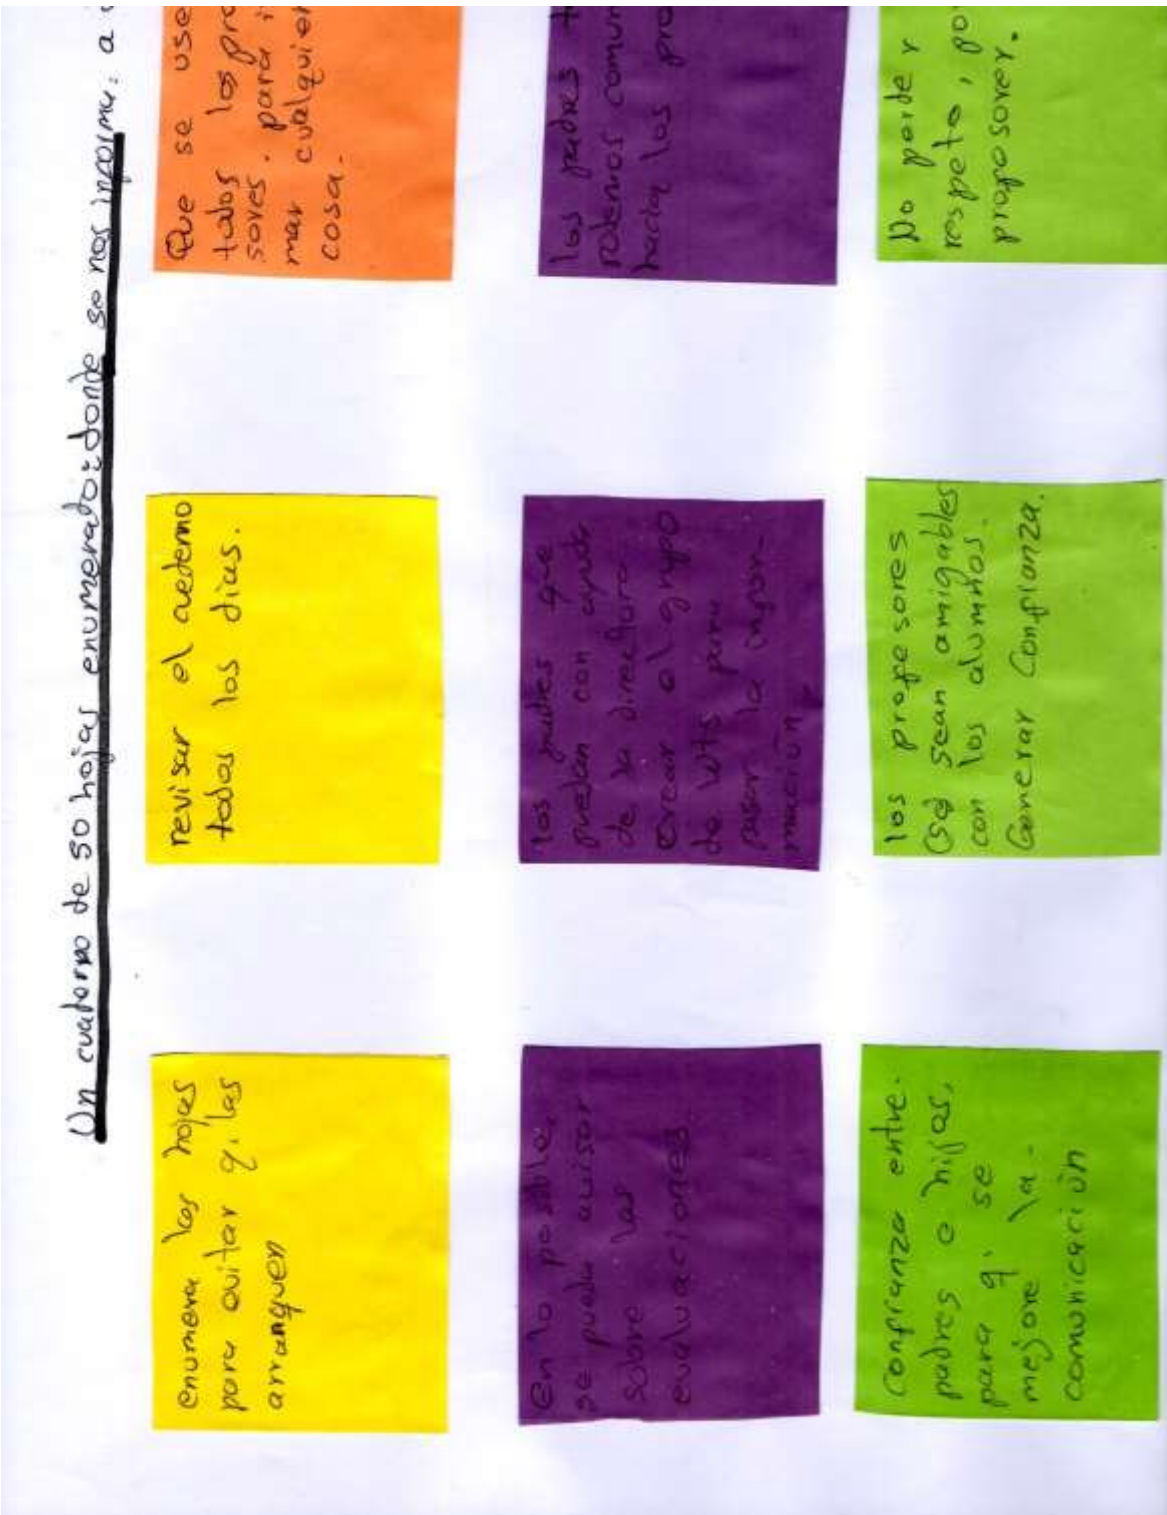 Un cuaderno de 50 hojas enumerado: donde se nos informe: a
enumera las hojas
para evitar q. las
arranquen
revisar el cuaderno
todos los dias.
Que se use
todos los pro
sores. para i
mar cualquier
cosa.
En lo posible,
se pueda avisar
sobre las
evaluaciones
los padres que
puedan con ayuda
de la directora
crear el grupo
de wts para
pasar la infor-
mación
los padres t
podemos comun
hacia los pro
Confianza entre.
padres e hijos,
para q. se
mejore la.
comunicación
los profesores
(se sean amigables
con los alumnos.
Generar Confianza.
No perder r
respeto, po
profesorer.